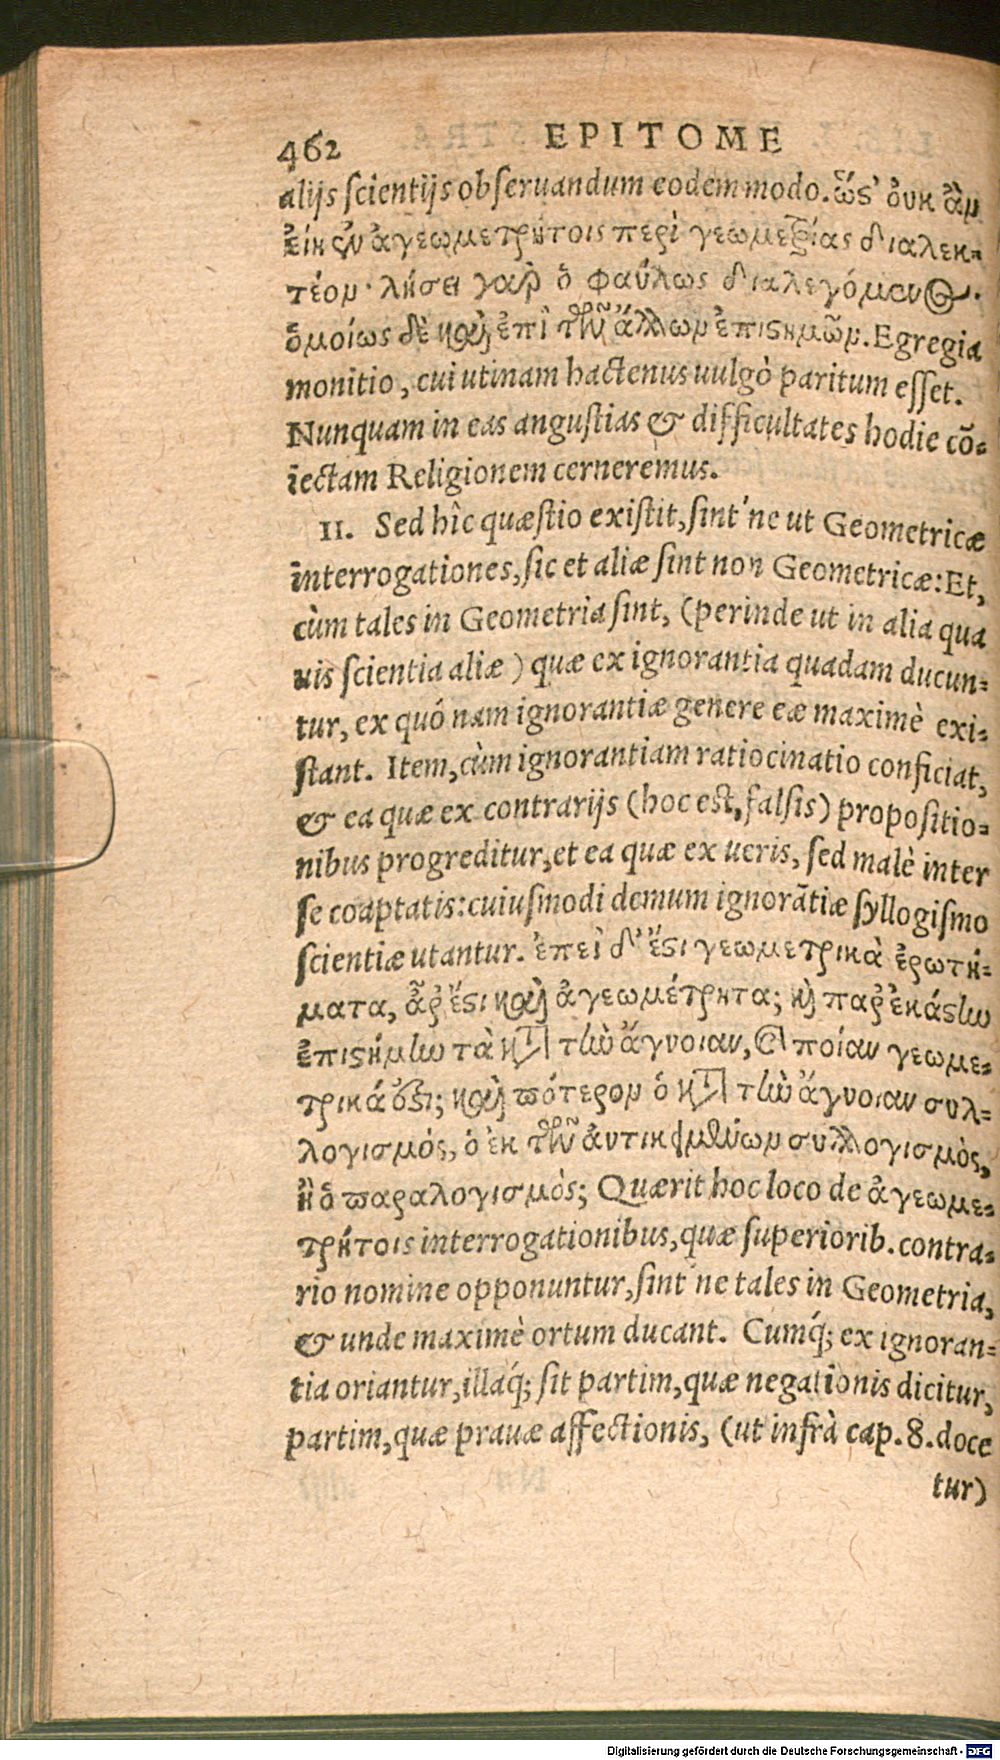 462 EPITOME
alijs scientijs obseruandum eodem modo. ὥστ' ὀυκ ἂμ
εἴη ἐν ἀγεωμετρήτοις περὶ γεωμετρίας διαλεκ=
τέομ· λήσει γαρ ὁ φαύλως διαλεγόμενος.
ὁμοίως δὲ καὶ ἐπὶ τῶν ἄλλωμ ἐπιστημῶμ. Egregia
monitio, cui utinam hactenus uulgò paritum esset.
Nunquam in eas angustias & difficultates hodie cō=
iectam Religionem cerneremus.
II. Sed hîc quæstio existit, sint'ne ut Geometricæ
interrogationes, sic et aliæ sint non Geometricæ: Et,
cùm tales in Geometria sint, (perinde ut in alia qua
uis scientia aliæ) quæ ex ignorantia quadam ducun=
tur, ex quó nam ignorantiæ genere eæ maximè exi=
stant. Item, cùm ignorantiam ratiocinatio conficiat,
& ea quæ ex contrarijs (hoc est, falsis) propositio=
nibus progreditur, et ea quæ ex ueris, sed malè inter
se coaptatis: cuiusmodi demum ignorātiæ syllogismo
scientiæ utantur. ἐπεὶ δ' ἔστι γεωμετρικὰ ἐρωτή=
ματα, ἆρ' ἔστι καὶ ἀγεωμέτρητα; καὶ παρ' ἑκάστην
ἐπιστήμην τὰ κατὰ τὴν ἄγνοιαν, ποίαν γεωμε=
τρικά ἐστι; καὶ πότερομ ὁ κατὰ τὴν ἄγνοιαν συλ=
λογισμός, ὁ ἐκ τῶν ἀντικειμένωμ συλλογισμὸς,
ἢ ὁ παραλογισμὸς; Quærit hoc loco de ἀγεωμε=
τρήτοις interrogationibus, quæ superiorib. contra=
rio nomine opponuntur, sint'ne tales in Geometria,
& unde maximè ortum ducant. Cumq́; ex ignoran=
tia oriantur, illaq́; sit partim, quæ negationis dicitur,
partim, quæ prauæ affectionis, (ut infrà cap. 8. doce
tur)
Digitalisierung gefördert durch die Deutsche Forschungsgemeinschaft - DFG